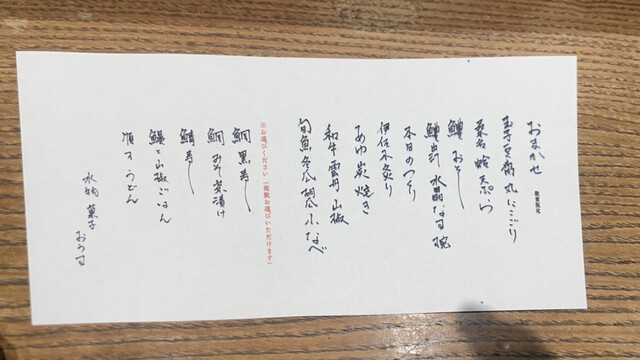 おまかせ
数量限定
玉子豆腐 丸にこごり
桑名 蛤 天ぷら
鱧 おそし
水晶なす 椀
本日のつくり
伊佐木炙り
あゆ 炭焼き
和牛 雲丹 山椒
旬魚 冬瓜 胡瓜 小なべ
※お選びください（複数お選びいただけます）
鯛 黒寿し
鯛 みそ茶漬け
鯖寿し
鰻と山椒ごはん
うどん
水物 菓子
おうす